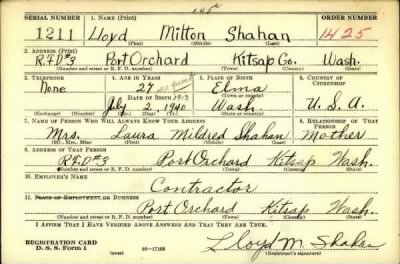 145
SERIAL NUMBER 1. NAME (Print) ORDER NUMBER
1211 Lloyd Milton Shahan 1425
(First) (Middle) (Last)
2. ADDRESS (Print)
R.F.D #3 Port Orchard Kitsap Co. Wash.
(Number and street or R. F. D. number) (Town) (County) (State)
3. TELEPHONE 4. AGE IN YEARS 5. PLACE OF BIRTH 6. COUNTRY OF CITIZENSHIP
None 27 Elma U. S. A.
DATE OF BIRTH 1913 (Town or county)
July 2, 1940 Wash.
(Exchange) (Number) (Mo.) (Day) (Yr.) (State or country)
7. NAME OF PERSON WHO WILL ALWAYS KNOW YOUR ADDRESS 8. RELATIONSHIP OF THAT PERSON
Mrs. Laura Mildred Shahan Mother
(Mr., Mrs., Miss) (First) (Middle) (Last)
9. ADDRESS OF THAT PERSON
R.F.D #3 Port Orchard Kitsap Wash.
(Number and street or R. F. D. number) (Town) (County) (State)
10. EMPLOYER'S NAME
Contractor
11. PLACE OF EMPLOYMENT OR BUSINESS
Port Orchard Kitsap Wash.
(Number and street or R. F. D. number) (Town) (County) (State)
I AFFIRM THAT I HAVE VERIFIED ABOVE ANSWERS AND THAT THEY ARE TRUE.
REGISTRATION CARD
D. S. S. Form 1 (over) 16-17105 Lloyd M. Shahan
(Registrant's signature)